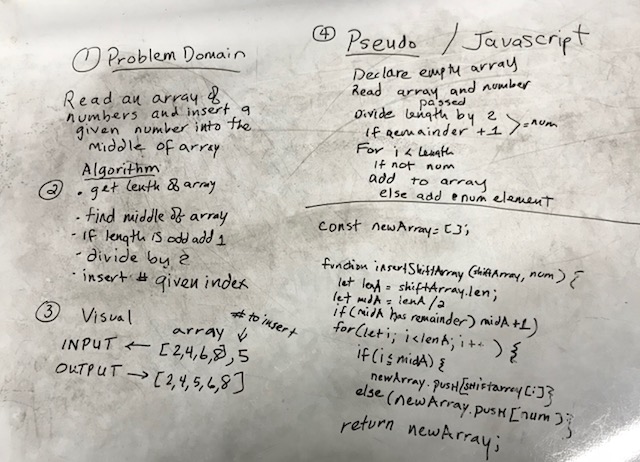 ① Problem Domain
Read an array of
numbers and insert a
given number into the
middle of array
Algorithm
② • get lenth of array
• find middle of array
- If length is odd add 1
- divide by 2
• insert # given index
③ Visual
array # to insert
INPUT ← [2,4,6,8], 5
OUTPUT → [2,4,5,6,8]
④ Pseudo / Javascript
Declare empty array
Read array and number
passed
Divide length by 2
If remainder +1 > = num
For i < Length
If not num
add to array
else add num element
const newArray = [];
function insertShiftArray (shiftArray, num) {
let lenA = shiftArray.len;
let midA = lenA /2
if (midA has remainder) midA +1)
for (let i; i<lenA; i++) {
if (i ≤ midA) {
newArray.push[shiftarray[i]}
else (newArray.push[num];}
return newArray;